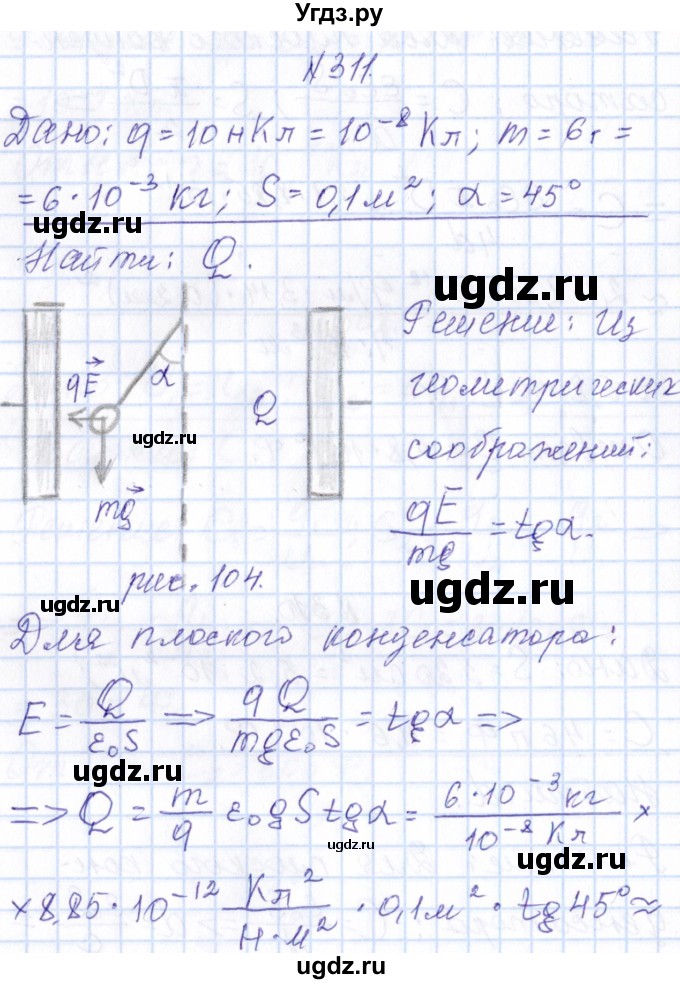 Угдз.ру
N 311.
Дано: q = 10 нКл = 10⁻⁸ Кл; m = 6 г =
= 6 · 10⁻³ кг; S = 0,1 м²; α = 45°
ugdz.ru
ugdz.ru
Найти: Q.
ugdz.ru
Решение: Из
геометрических
соображений:
qE/mg = tgα.
−
qE⃗
α
Q
ugdz.ru
mg⃗
ugdz.ru
рис. 104.
ugdz.ru
Для плоского конденсатора:
E = Q/ε₀S => qQ/mgε₀S = tgα =>
ugdz.ru
ugdz.ru
=> Q = m/q ε₀gS tgα = 6·10⁻³ кг/10⁻⁸ Кл ×
ugdz.ru
ugdz.ru
× 8,85 · 10⁻¹² Кл²/Н·м² · 0,1 м² · tg 45° ≈
ugdz.ru
ugdz.ru